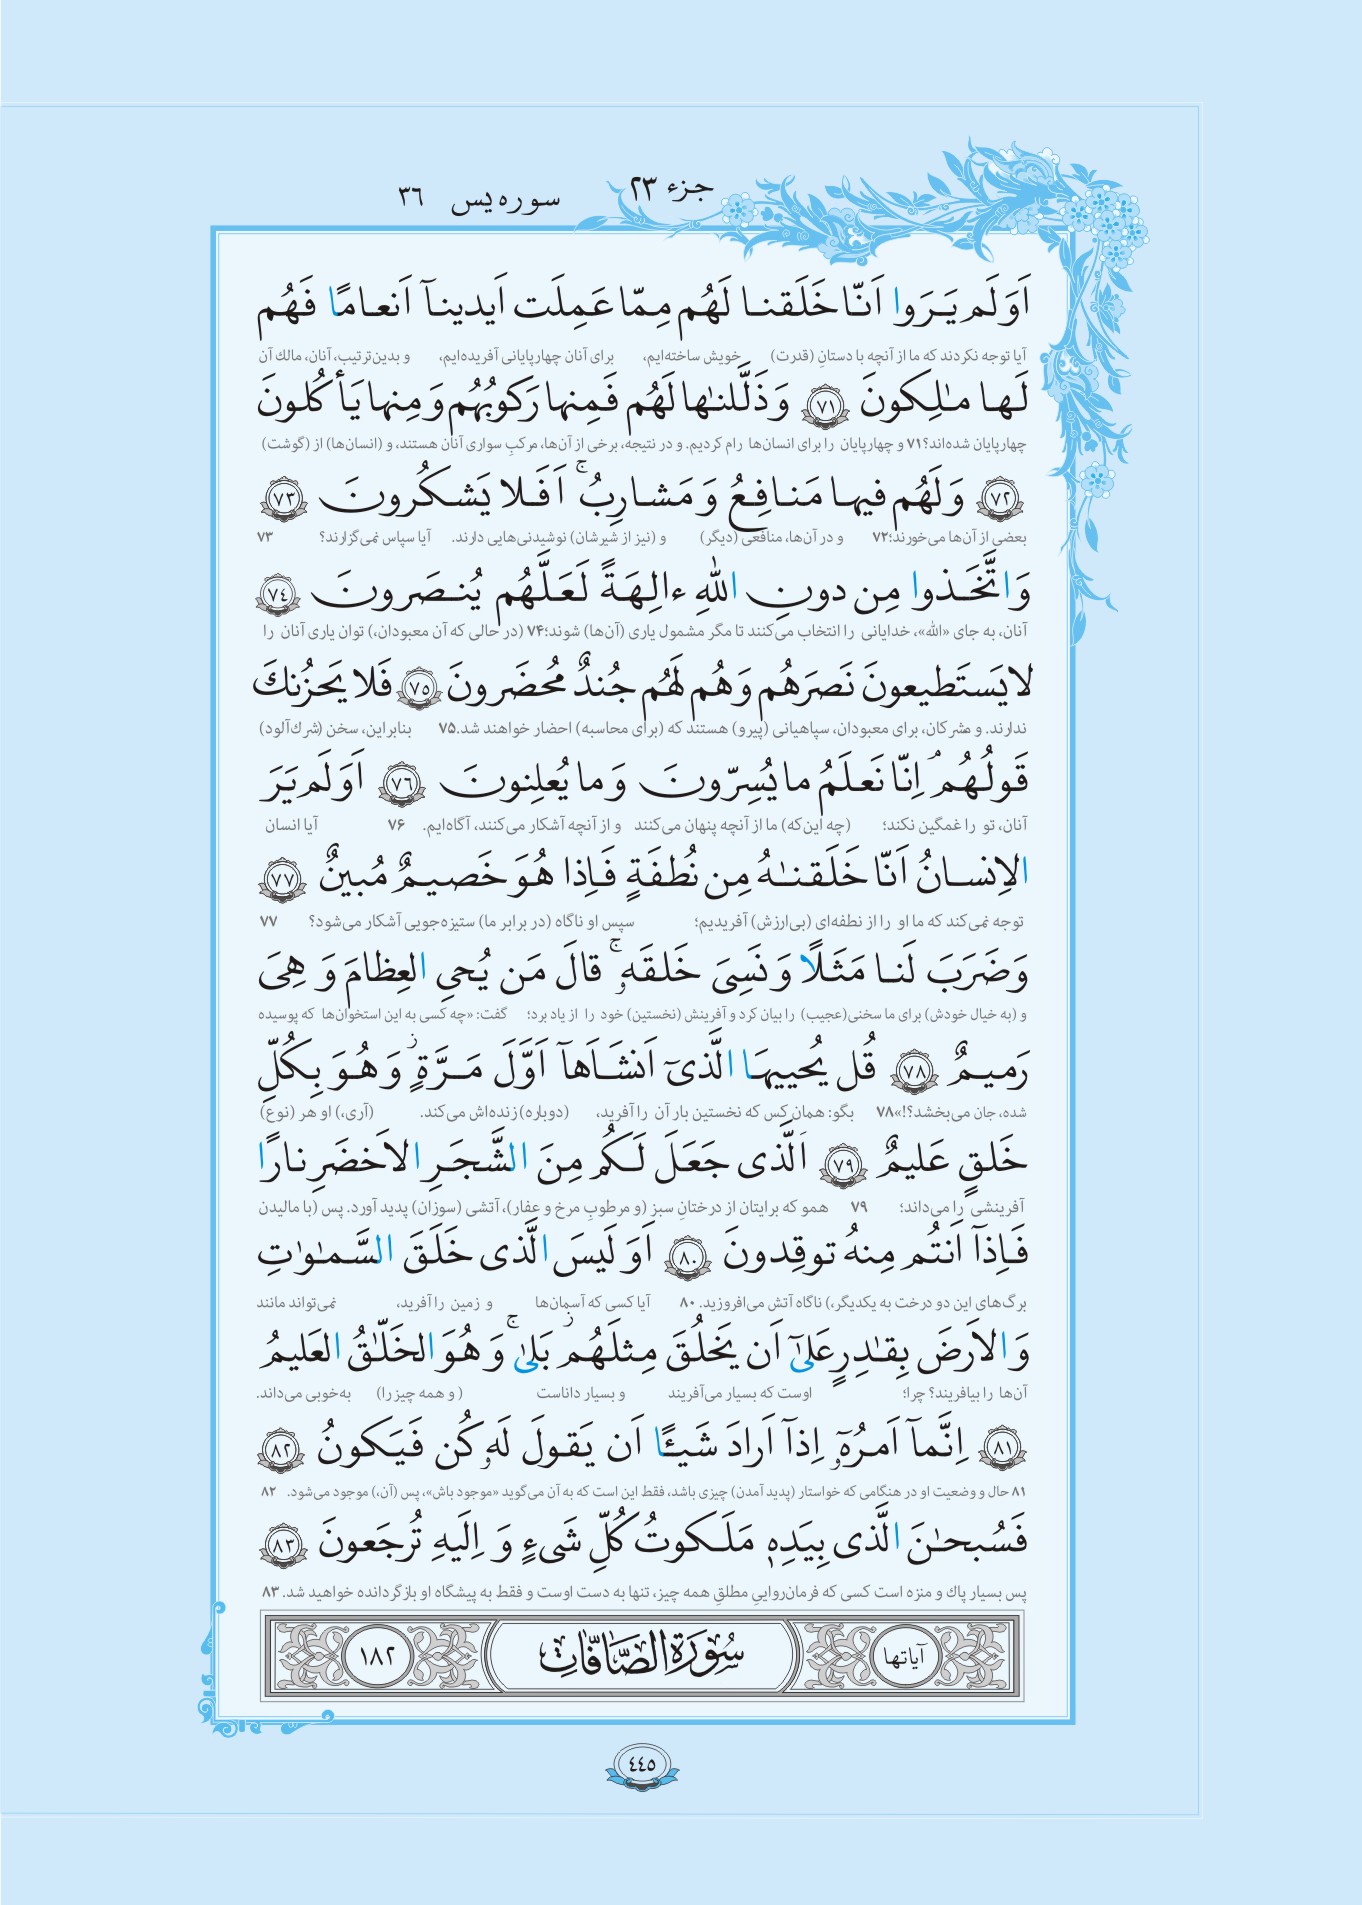 جزء ٢٣
سوره یس ٣٦
اَوَ لَم يَـرَوا اَنّا خَلَقنـا لَهُم مِمّا عَمِلَت اَيدينـآ اَنعـامًا فَهُم
آیا توجه نکردند که ما از آنچه با دستانِ (قدرت) خویش ساخته‌ایم، برای آنان چهارپایانی آفریده‌ایم، و بدین‌ترتیب، آنان، مالك آن
لَـهـا مـٰلِـكونَ ٧١ وَ ذَلَّلنـٰها لَهُم فَمِنها رَكوبُهُم وَ مِنها يَأكُلونَ
چهارپایان شده‌اند؟۷۱ و چهارپایان را برای انسان‌ها رام کردیم. و در نتیجه، برخی از آن‌ها، مرکبِ سواری آنان هستند، و (انسان‌ها) از (گوشت)
٧٢ وَ لَهُم فيها مَنـافِـعُ وَ مَشـارِبُ ۚ اَفَـلا يَشكُرونَ ٧٣
بعضی از آن‌ها می‌خورند؛۷۲ و در آن‌ها، منافعی (دیگر) و (نیز از شیرشان) نوشیدنی‌هایی دارند. آیا سپاس نمی‌گزارند؟ ۷۳
وَ اتَّخَـذوا مِن دونِ اللّٰهِ ءالِـهَـةً لَعَـلَّهُم يُنـصَرونَ ٧٤
آنان، به جای «الله»، خدایانی را انتخاب می‌کنند تا مگر مشمول یاری (آن‌ها) شوند؛۷۴ (در حالی که آن معبودان،) توان یاری آنان را
لا يَستَطيعونَ نَصرَهُم وَ هُم لَهُم جُندٌ مُحضَرونَ ٧٥ فَلا يَحزُنكَ
ندارند. و مشرکان، برای معبودان، سپاهیانی (پیرو) هستند که (برای محاسبه) احضار خواهند شد.۷۵ بنابراین، سخن (شرك‌آلود)
قَولُهُم ۘ اِنّا نَعلَمُ ما يُسِرّونَ وَ ما يُعلِنونَ ٧٦ اَوَ لَم يَرَ
آنان، تو را غمگین نکند؛ (چه این‌که) ما از آنچه پنهان می‌کنند و از آنچه آشکار می‌کنند، آگاه‌ایم. ۷۶ آیا انسان
الاِنسـانُ اَنّا خَلَقنـٰـهُ مِن نُطفَةٍ فَـاِذا هُـوَ خَصيـمٌ مُبينٌ ٧٧
توجه نمی‌کند که ما او را از نطفه‌ای (بی‌ارزش) آفریدیم؛ سپس او ناگاه (در برابر ما) ستیزه‌جویی آشکار می‌شود؟ ۷۷
وَ ضَرَبَ لَنـا مَثَـلًا وَ نَسِىَ خَلقَهٗ ۚ قالَ مَن يُحىِ العِظامَ وَ هِىَ
و (به خیال خودش) برای ما سخنی(عجیب) را بیان کرد و آفرینش (نخستین) خود را از یاد برد؛ گفت: «چه کسی به این استخوان‌ها که پوسیده
رَميـمٌ ٧٨ قُل يُحييهَـا الَّذىٓ اَنشَـاَهآ اَوَّلَ مَـرَّةٍ ۖ وَ هُـوَ بِكُلِّ
شده، جان می‌بخشد؟!»۷۸ بگو: همان کس که نخستین بار آن را آفرید، (دوباره) زنده‌اش می‌کند. (آری،) او هر (نوع)
خَلقٍ عَليمٌ ٧٩ اَلَّذى جَعَلَ لَـكُم مِنَ الشَّجَـرِ الاَخضَرِ نـارًا
آفرینشی را می‌داند؛ ۷۹ همو که برایتان از درختانِ سبز (و مرطوبِ مرخ و عفار)، آتشی (سوزان) پدید آورد. پس (با مالیدن
فَـاِذآ اَنتُـم مِنهُ توقِدونَ ٨٠ اَوَ لَيسَ الَّذى خَلَقَ السَّمـٰوٰتِ
برگ‌های این دو درخت به یکدیگر،) ناگاه آتش می‌افروزید. ۸۰ آیا کسی که آسمان‌ها و زمین را آفرید، نمی‌تواند مانند
وَ الاَرضَ بِقـٰدِرٍ عَلىٰٓ اَن يَخلُقَ مِثلَهُم ۚ بَلىٰ وَ هُوَ الخَلّـٰقُ العَليمُ
آن‌ها را بیافریند؟ چرا؛ اوست که بسیار می‌آفریند و بسیار داناست ( و همه چیز را) به‌خوبی می‌داند.
٨١ اِنَّمـآ اَمـرُهٗٓ اِذآ اَرادَ شَيـًٔا اَن يَقـولَ لَهٗ كُن فَيَـكونُ ٨٢
۸۱ حال و وضعیت او در هنگامی که خواستار (پدید آمدن) چیزی باشد، فقط این است که به آن می‌گوید «موجود باش»، پس (آن،) موجود می‌شود. ۸۲
فَسُبحـٰنَ الَّذى بِيَدِهٖ مَلَـكوتُ كُلِّ شَىءٍ وَ اِلَيهِ تُرجَعونَ ٨٣
پس بسیار پاك و منزه است کسی که فرمان‌رواییِ مطلقِ همه چیز، تنها به دست اوست و فقط به پیشگاه او بازگردانده خواهید شد. ۸۳
آیاتها سُورَةُ الصَّافَّاتِ ١٨٢
٤٤٥